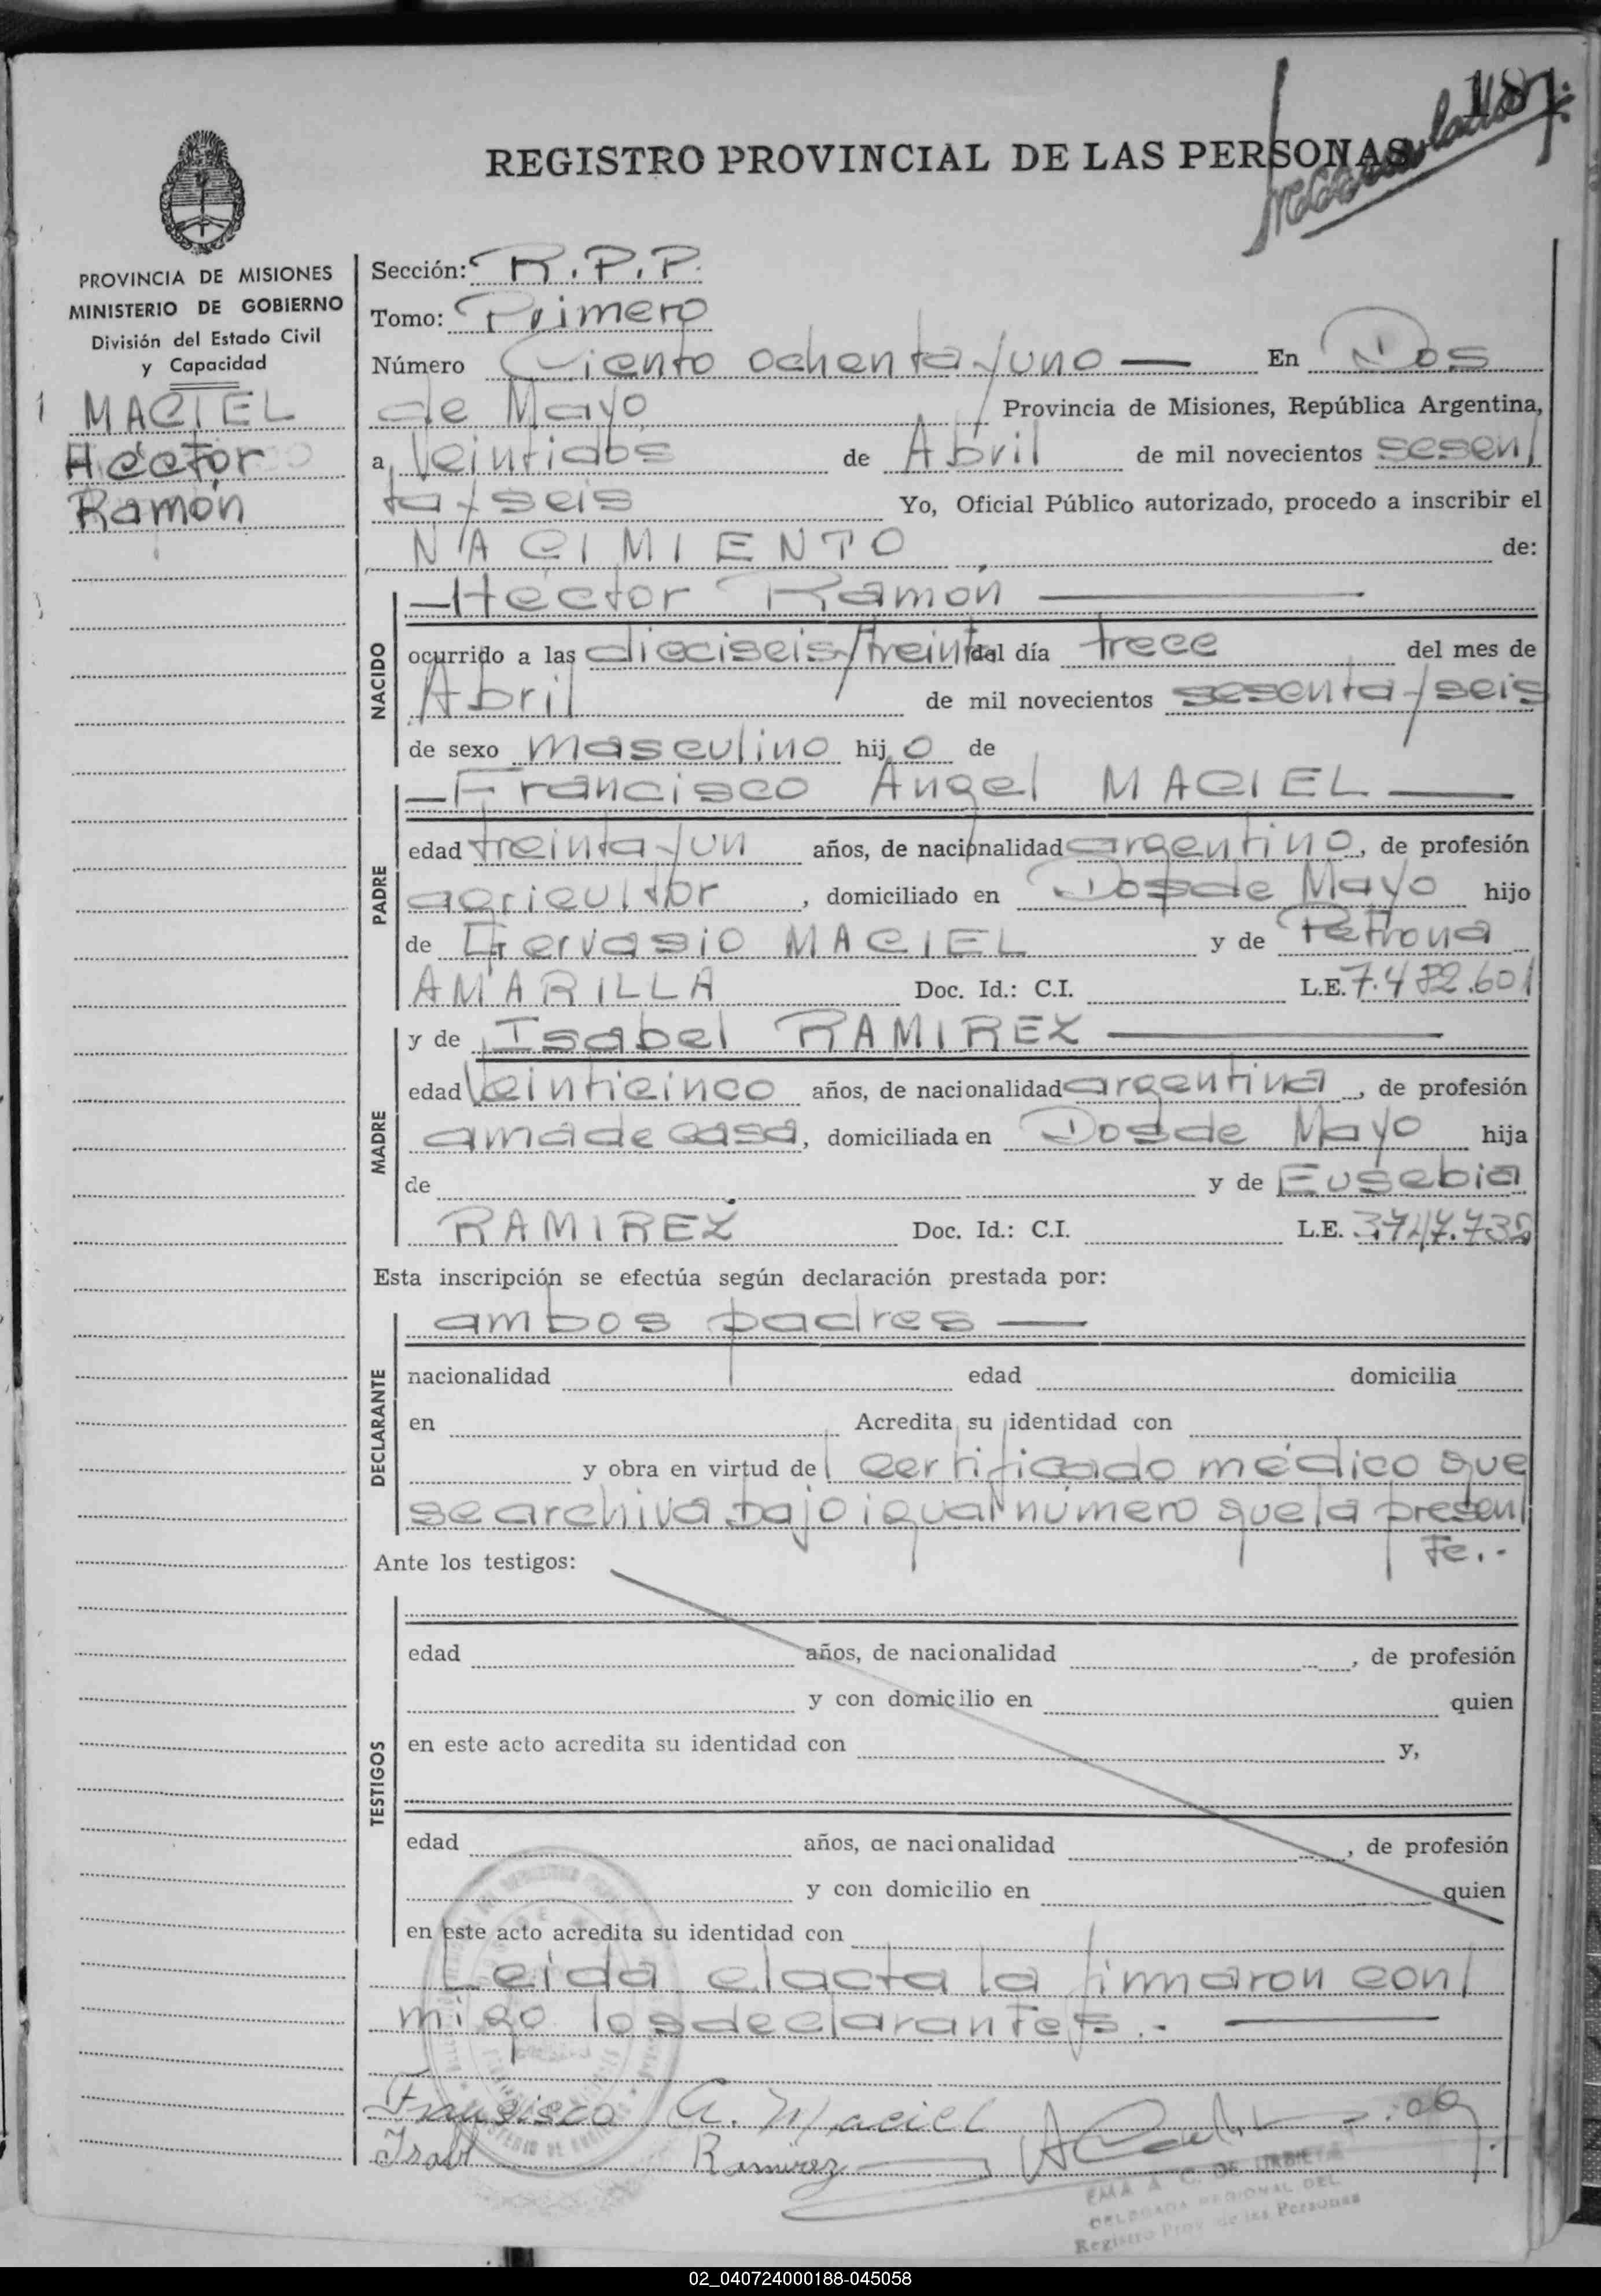 181
REGISTRO PROVINCIAL DE LAS PERSONAS
PROVINCIA DE MISIONES
MINISTERIO DE GOBIERNO
División del Estado Civil
y Capacidad
1 MACIEL
Héctor
Ramón
Sección: R.P.P.
Tomo: Primero
Número Ciento ochenta y uno — En Dos
de Mayo Provincia de Misiones, República Argentina,
a Veintidos de Abril de mil novecientos sesen
ta y seis Yo, Oficial Público autorizado, procedo a inscribir el
NACIMIENTO de:
NACIDO
— Héctor Ramón —
ocurrido a las dieciseis y treinta del día trece del mes de
Abril de mil novecientos sesenta y seis
de sexo masculino hijo de
PADRE
— Francisco Angel MACIEL —
edad treinta y un años, de nacionalidad argentino, de profesión
agricultor, domiciliado en Dos de Mayo hijo
de Gervasio MACIEL y de Petrona
AMARILLA Doc. Id.: C.I. L.E. 7.482.601
MADRE
y de Isabel RAMIREZ —
edad Veinticinco años, de nacionalidad argentina, de profesión
ama de casa, domiciliada en Dos de Mayo hija
de y de Eusebia
RAMIREZ Doc. Id.: C.I. L.E.
Esta inscripción se efectúa según declaración prestada por:
DECLARANTE
ambos padres —
nacionalidad edad domicilia
en Acredita su identidad con
y obra en virtud del certificado médico que
se archiva bajo igual número que la presen
te.-
Ante los testigos:
TESTIGOS
edad años, de nacionalidad , de profesión
y con domicilio en quien
en este acto acredita su identidad con y,
edad años, de nacionalidad , de profesión
y con domicilio en quien
en este acto acredita su identidad con
Leida el acta la firmaron con
migo los declarantes.- —
Francisco A. Maciel
Isabel Ramirez
EMA A. C. DE URBIETA
DELEGADA REGIONAL DEL
Registro Prov. de las Personas
02_040724000188-045058